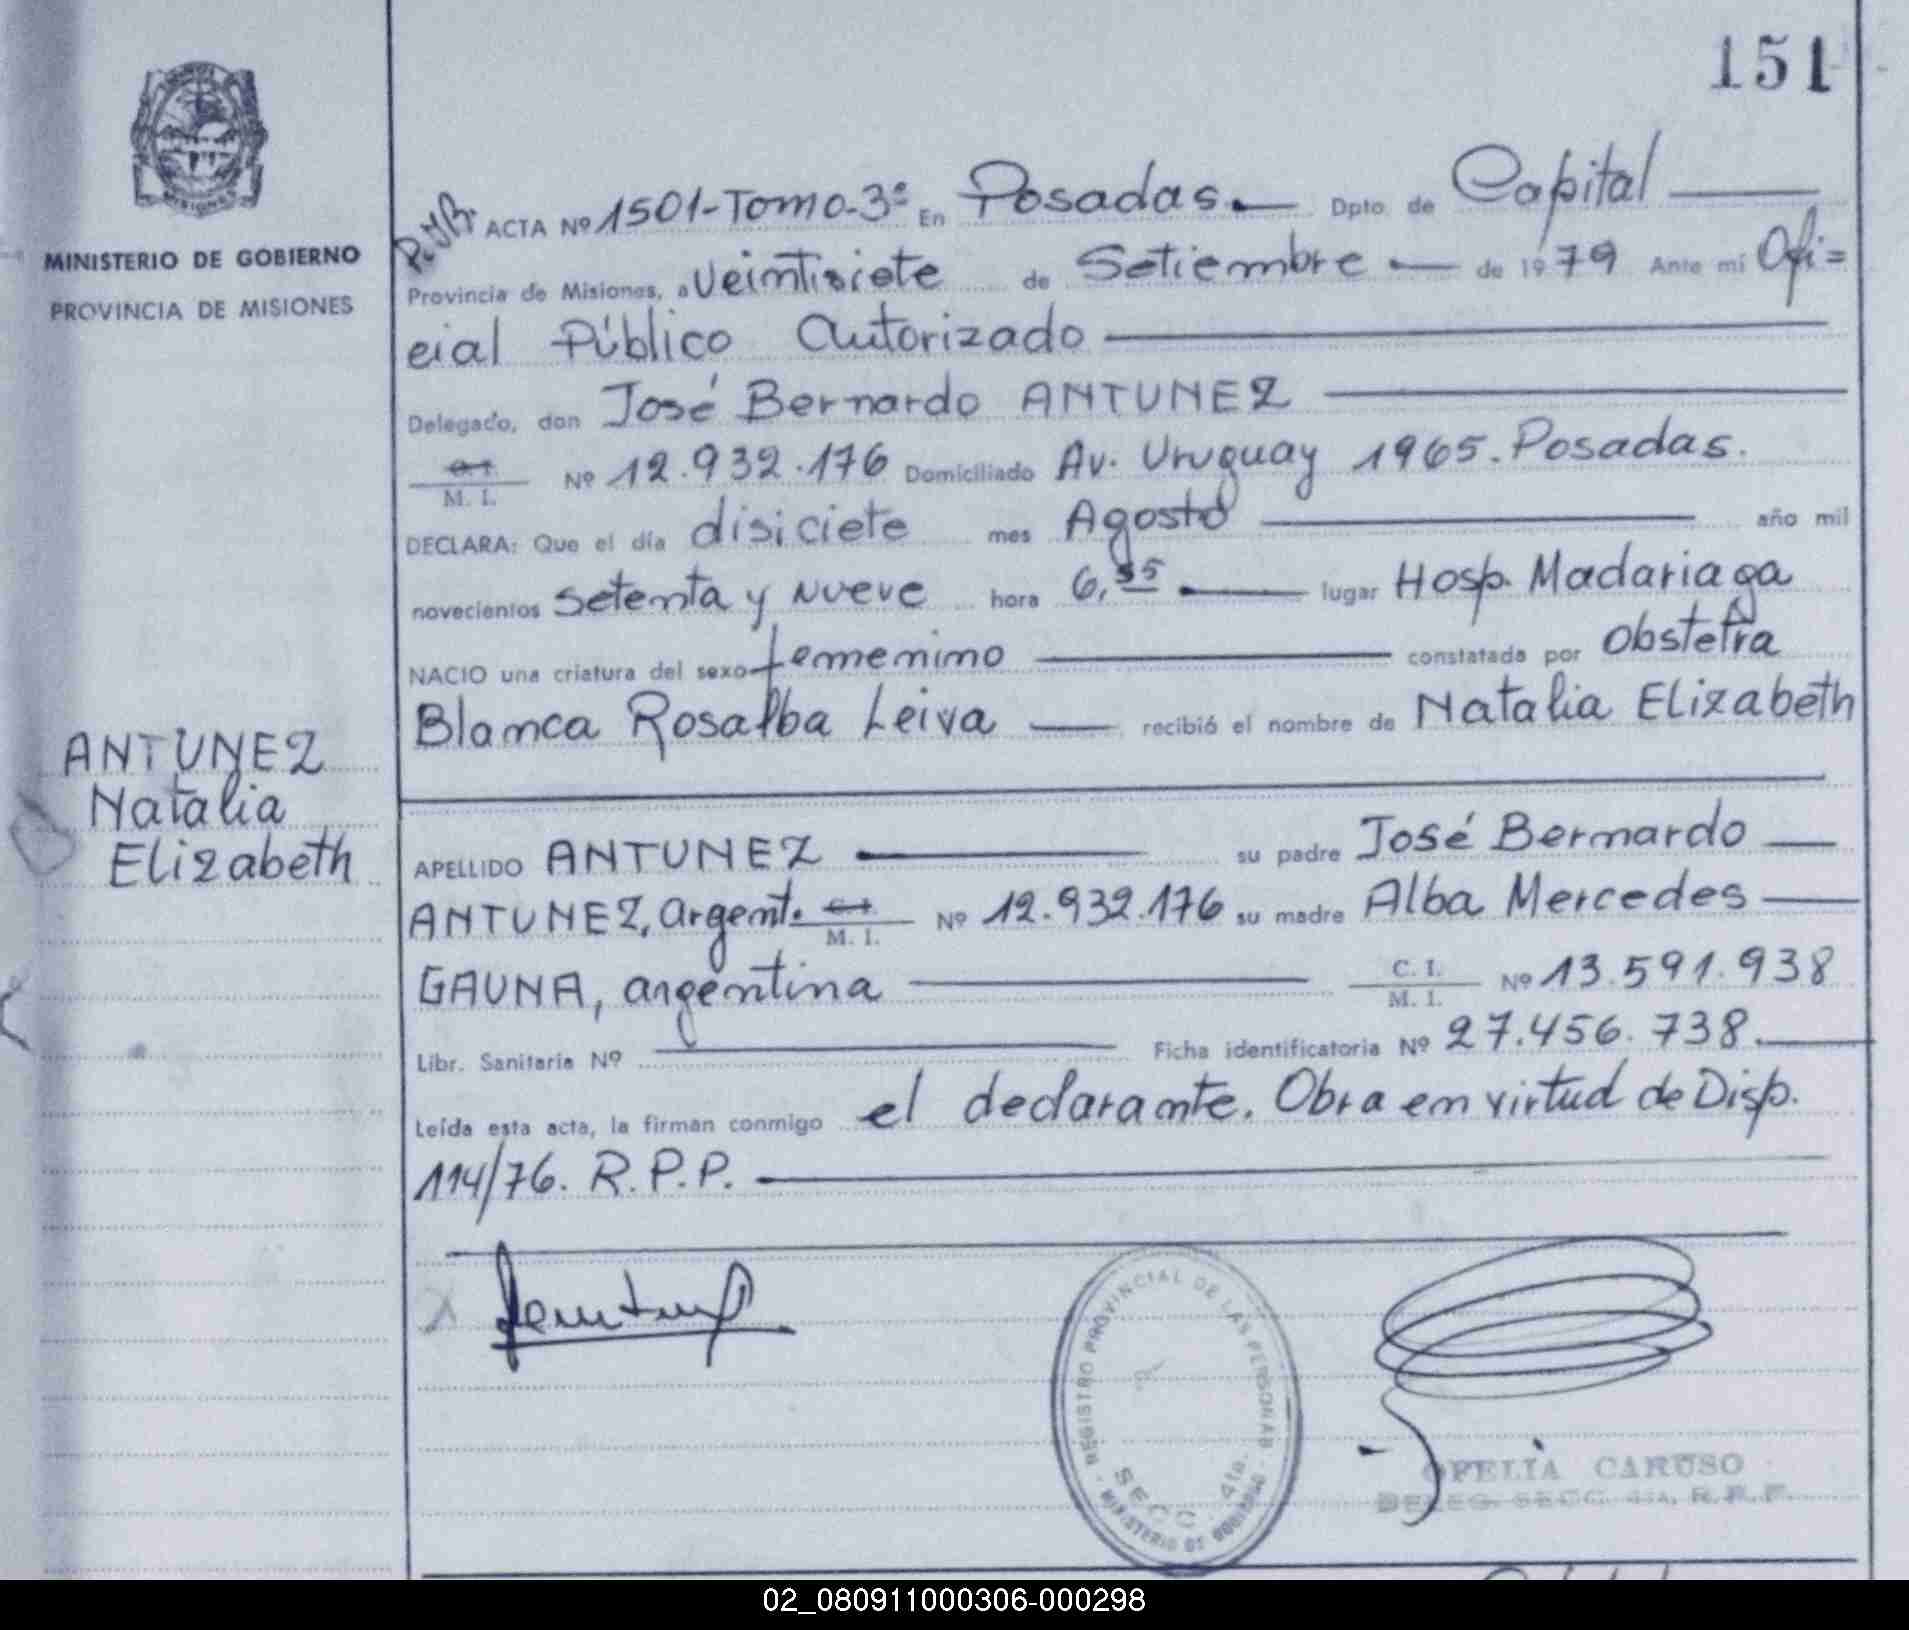 151
MINISTERIO DE GOBIERNO
PROVINCIA DE MISIONES
ACTA Nº 1501-Tomo-3º En Posadas.— Dpto. de Capital
Provincia de Misiones, a veintisiete de Setiembre — de 1979 Ante mí Ofi=
cial Público Autorizado
Delegado, don José Bernardo ANTUNEZ
M. I. Nº 12.932.176 Domiciliado Av. Uruguay 1965. Posadas.
DECLARA: Que el día disiciete mes Agosto año mil
novecientos setenta y nueve hora 6,55 lugar Hosp. Madariaga
NACIO una criatura del sexo femenino constatada por Obstetra
Blanca Rosalba Leiva — recibió el nombre de Natalia Elizabeth
ANTUNEZ
Natalia
Elizabeth
APELLIDO ANTUNEZ su padre José Bernardo —
ANTUNEZ, argent. C.I. M. I. Nº 12.932.176 su madre Alba Mercedes —
GAUNA, argentina C. I. M. I. Nº 13.591.938
Libr. Sanitaria Nº Ficha identificatoria Nº 27.456.738.
Leída esta acta, la firman conmigo el declarante. Obra en virtud de Disp.
114/76. R.P.P.
REGISTRO PROVINCIAL DE LAS PERSONAS
SECC. 4ta.
MINISTERIO DE GOBIERNO
OFELIA CARUSO
DELEG. SECC. 4ta, R.P.P.
02_080911000306-000298